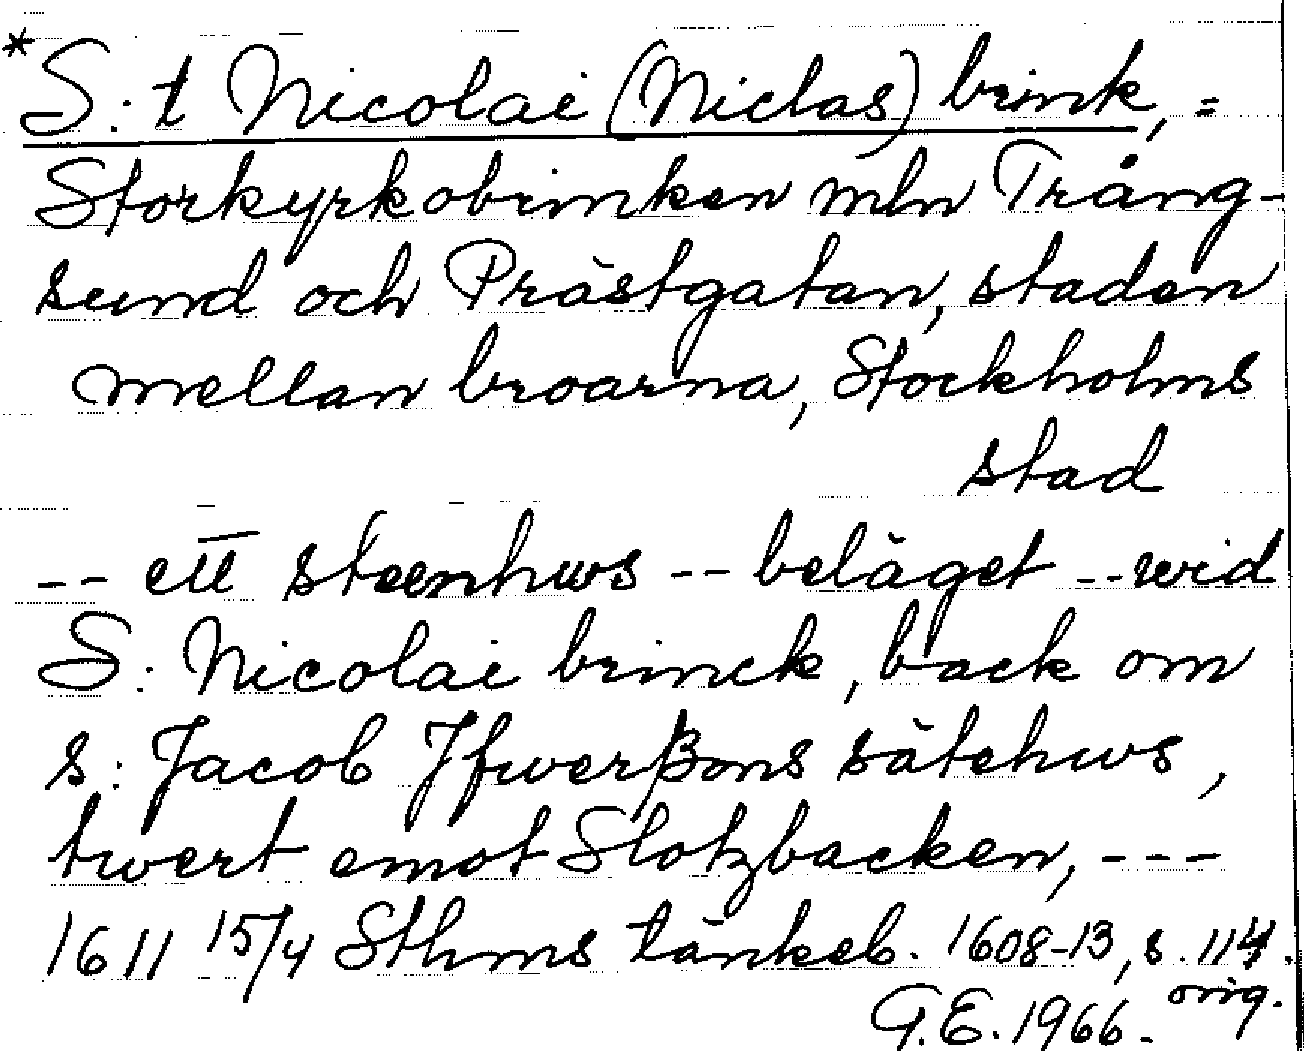 *S:t Nicolai (Niclas) brink, =
Storkyrkobrinken mln Trång-
sund och Prästgatan, staden
mellan broarna, Stockholms
stad
-- ett steenhws -- beläget -- wid
S: Nicolai brinck, back om
s: Jacob Ifwerßons sätehws,
twert emot Slotzbacken, ---
1611 15/4 Sthms tänkeb. 1608-13, s. 114.
orig.
G.E. 1966.-